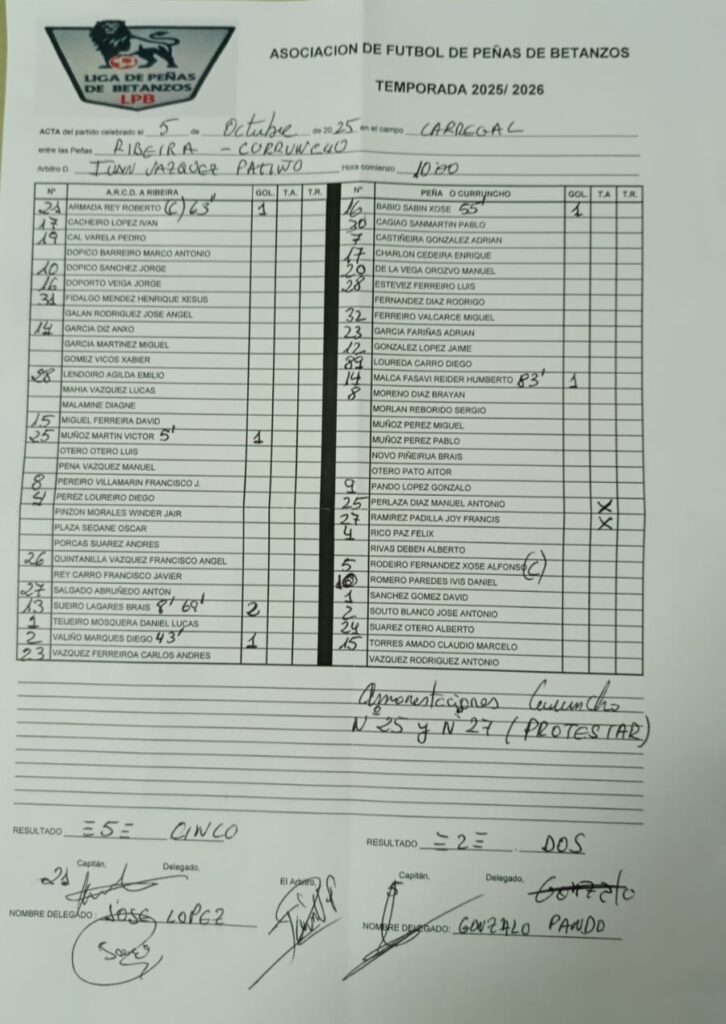 LIGA DE PEÑAS
DE BETANZOS
LPB
ASOCIACION DE FUTBOL DE PEÑAS DE BETANZOS
TEMPORADA 2025/ 2026
ACTA del partido celebrado el 5 de Octubre de 2025 en el campo CARREGAL
entre las Peñas RIBEIRA - CURRUNCHO
Arbitro D. IVAN VAZQUEZ PATIÑO Hora comienzo 10:00
Nº A.R.C.D. A RIBEIRA GOL. T.A. T.R.
21 ARMADA REY ROBERTO (C) 63' 1
17 CACHEIRO LOPEZ IVAN
19 CAL VARELA PEDRO
DOPICO BARREIRO MARCO ANTONIO
10 DOPICO SANCHEZ JORGE
16 DOPORTO VEIGA JORGE
31 FIDALGO MENDEZ HENRIQUE XESUS
GALAN RODRIGUEZ JOSE ANGEL
14 GARCIA DIZ ANXO
GARCIA MARTINEZ MIGUEL
GOMEZ VICOS XABIER
28 LENDOIRO AGILDA EMILIO
MAHIA VAZQUEZ LUCAS
MALAMINE DIAGNE
15 MIGUEL FERREIRA DAVID
25 MUÑOZ MARTIN VICTOR 5' 1
OTERO OTERO LUIS
PENA VAZQUEZ MANUEL
8 PEREIRO VILLAMARIN FRANCISCO J.
4 PEREZ LOUREIRO DIEGO
PINZON MORALES WINDER JAIR
PLAZA SEOANE OSCAR
PORCAS SUAREZ ANDRES
26 QUINTANILLA VAZQUEZ FRANCISCO ANGEL
REY CARRO FRANCISCO JAVIER
27 SALGADO ABRUÑEDO ANTON
13 SUEIRO LAGARES BRAIS 8' 69' 2
1 TEIJEIRO MOSQUERA DANIEL LUCAS
2 VALIÑO MARQUES DIEGO 43' 1
23 VAZQUEZ FERREIROA CARLOS ANDRES
Nº PEÑA O CURRUNCHO GOL. T.A T.R.
16 BABIO SABIN XOSE 55' 1
30 CAGIAO SANMARTIN PABLO
7 CASTIÑEIRA GONZALEZ ADRIAN
17 CHARLON CEDEIRA ENRIQUE
29 DE LA VEGA OROZVO MANUEL
28 ESTEVEZ FERREIRO LUIS
FERNANDEZ DIAZ RODRIGO
32 FERREIRO VALCARCE MIGUEL
23 GARCIA FARIÑAS ADRIAN
12 GONZALEZ LOPEZ JAIME
89 LOUREDA CARRO DIEGO
14 MALCA FASAVI REIDER HUMBERTO 83' 1
8 MORENO DIAZ BRAYAN
MORLAN REBORIDO SERGIO
MUÑOZ PEREZ MIGUEL
MUÑOZ PEREZ PABLO
NOVO PIÑEIRUA BRAIS
OTERO PATO AITOR
9 PANDO LOPEZ GONZALO
25 PERLAZA DIAZ MANUEL ANTONIO X
27 RAMIREZ PADILLA JOY FRANCIS X
4 RICO PAZ FELIX
RIVAS DEBEN ALBERTO
5 RODEIRO FERNANDEZ XOSE ALFONSO (C)
10 ROMERO PAREDES IVIS DANIEL
1 SANCHEZ GOMEZ DAVID
2 SOUTO BLANCO JOSE ANTONIO
24 SUAREZ OTERO ALBERTO
15 TORRES AMADO CLAUDIO MARCELO
VAZQUEZ RODRIGUEZ ANTONIO
Amonestaciones Curruncho
Nº 25 y Nº 27 (PROTESTAR)
RESULTADO =5= CINCO
RESULTADO =2= DOS
Capitán, Delegado,
21
El Arbitro
Capitán, Delegado,
Gonzalo
NOMBRE DELEGADO: JOSE LOPEZ
NOMBRE DELEGADO: GONZALO PANDO